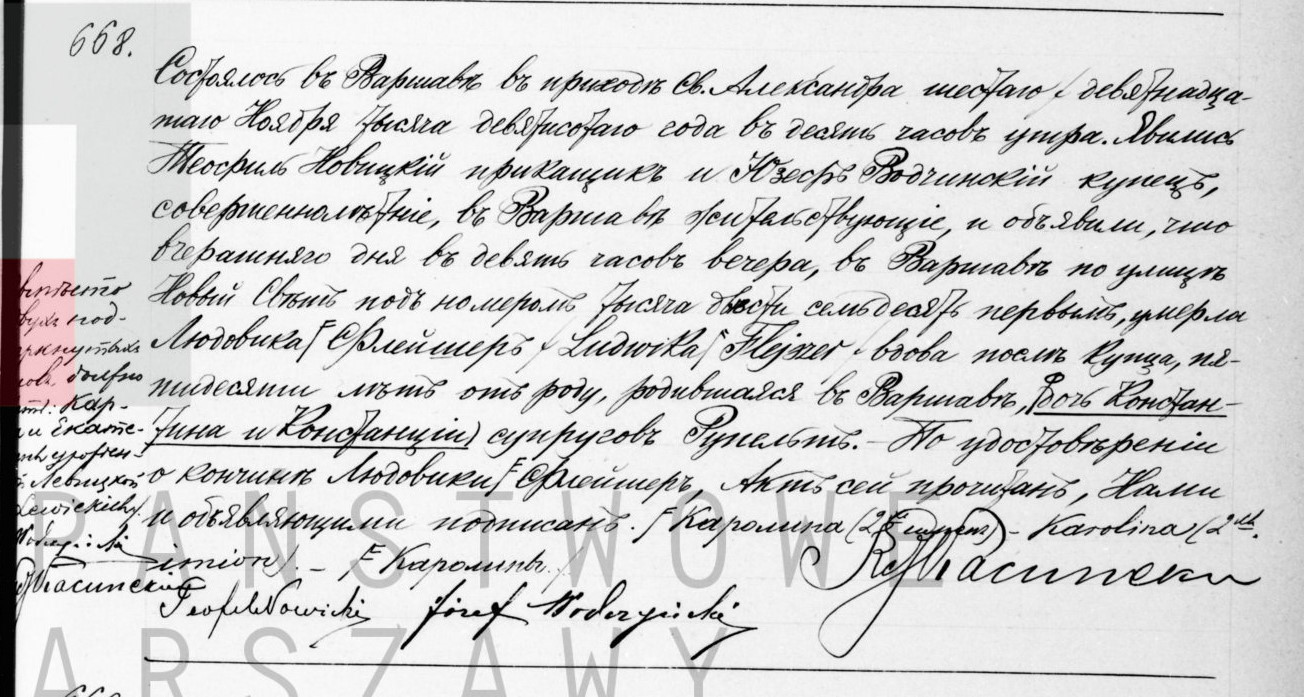 668.
Состоялось въ Варшавѣ въ приходѣ Св. Александра шестаго / девятнадца-
таго Ноября тысяча девятисотаго года въ десять часовъ утра. Явились
Теофиль Новицкій прикащикъ и Юзефъ Водчинскій купецъ,
совершеннолѣтніе, въ Варшавѣ жительствующіе, и объявили, что
вчерашняго дня въ девять часовъ вечера, въ Варшавѣ по улицѣ
Новый Свѣтъ подъ номеромъ тысяча двѣсти семьдесятъ первымъ, умерла
Людовика Флейшеръ / Ludwika Flejszer / вдова послѣ купца, пя-
тидесяти лѣтъ отъ роду, родившаяся въ Варшавѣ, (дочь Констан-
тина и Констанціи) супруговъ Рупельтъ. – По удостовѣреніи
о кончинѣ Людовики Флейшеръ, Актъ сей прочитанъ, Нами
и объявляющими подписанъ. Каролина (2 – Karolina (2
imion). – Каролины.
Teofil Nowicki Józef Woderzyński
вмѣсто
двухъ под-
черкнутыхъ
словъ должно
Кар-
и Екате-
урожден-
Левицкой
Lewickich
PAŃSTWOWE
WARSZAWY